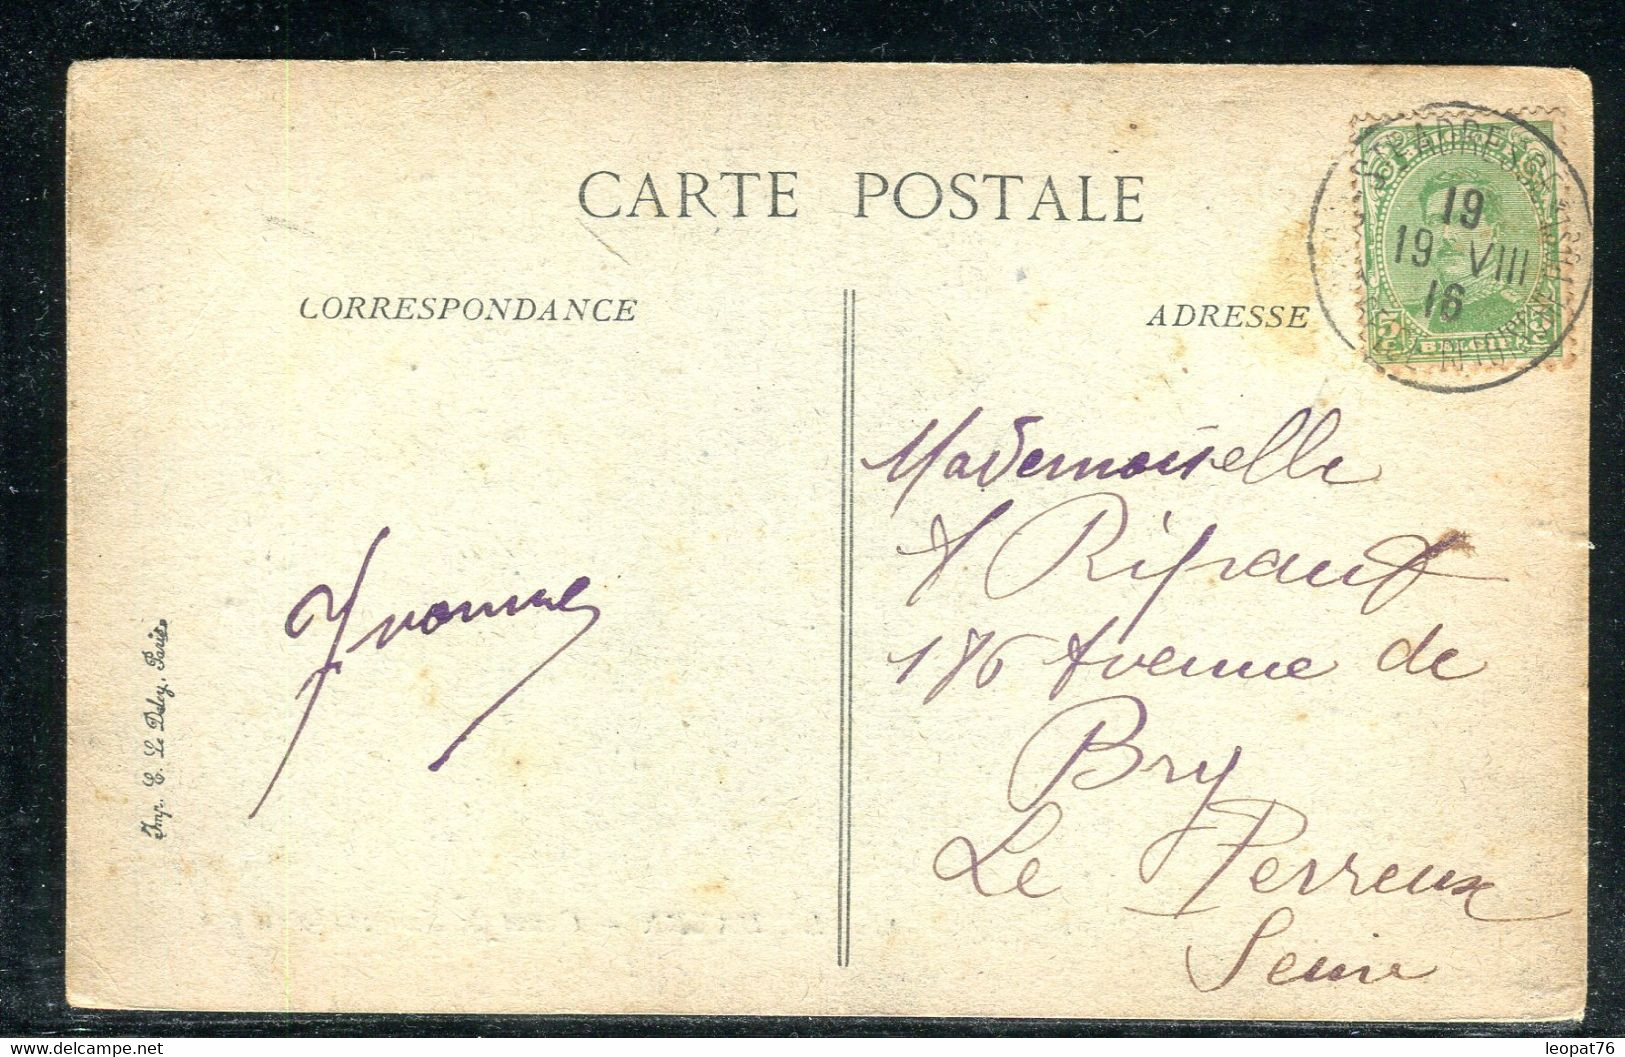 CARTE POSTALE
CORRESPONDANCE
ADRESSE
STE ADRESSE
19
19 VIII
16
5
BELGIE
Mademoiselle
Y Ripaut
176 Avenue de
Bry
Le Perreux
Seine
Yvonne
Imp. E. Le Deley, Paris
delcampe.net
leopat76